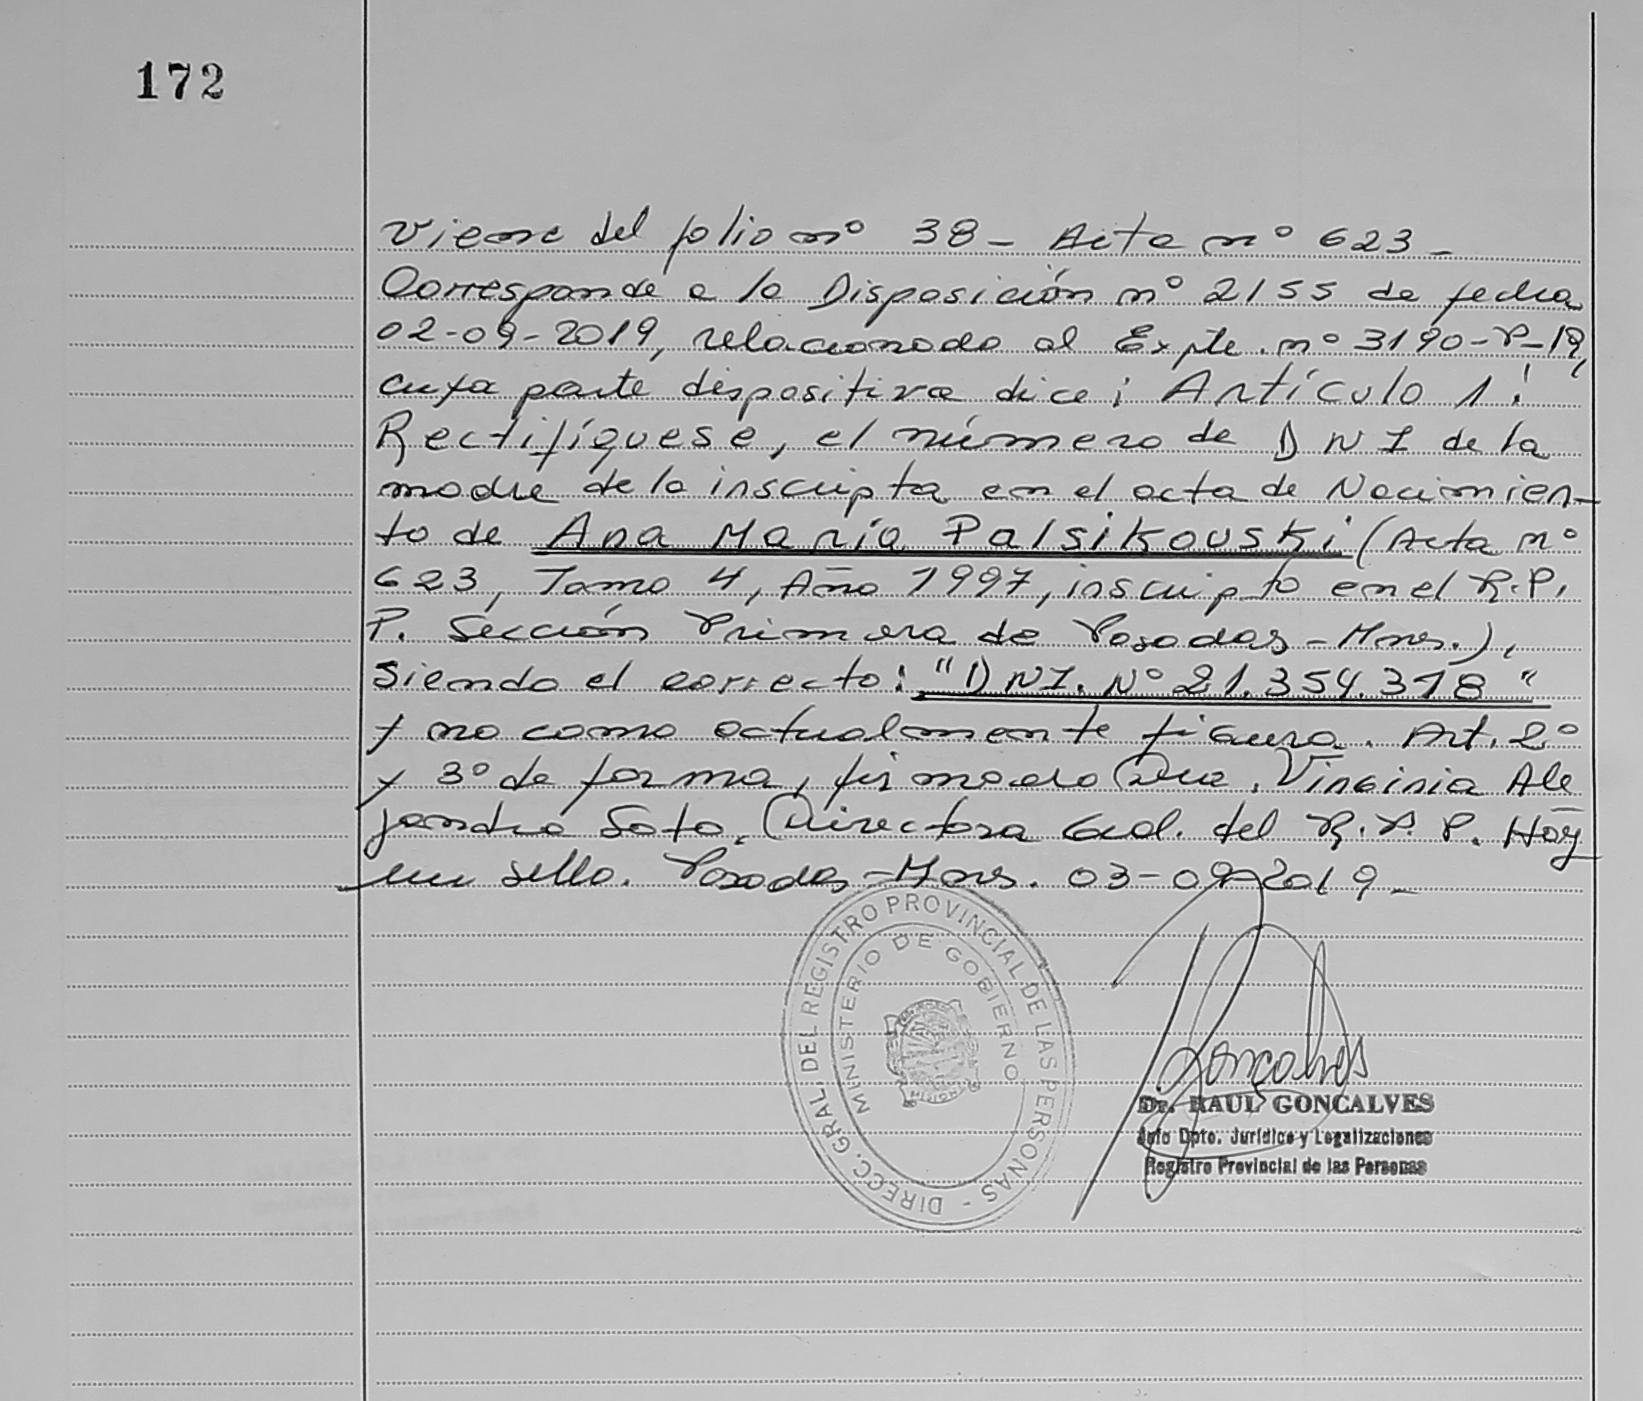 172
Viene del folio nº 38 - Acta nº 623 -
Corresponde a la Disposición nº 2155 de fecha
02-09-2019, relacionado al Expte. nº 3190-P-19,
cuya parte dispositiva dice: Artículo 1:
Rectifíquese, el número de DNI de la
madre de la inscripta en el acta de Nacimien-
to de Ana María Palsikouski (Acta nº
623, Tomo 4, Año 1997, inscripto en el R.P.
P. Sección Primera de Posadas - Mnes.),
Siendo el correcto: "DNI. Nº 21.354.318"
y no como actualmente figura. Art. 2º
y 3º de forma, firmado Dra. Virginia Ale
jandra Soto, Directora Gral. del R.P.P. Hay
un sello. Posadas - Mnes. 03-09-2019 -
DIRECC. GRAL. DEL REGISTRO PROVINCIAL DE LAS PERSONAS -
MINISTERIO DE GOBIERNO
Goncalves
Dr. RAUL GONCALVES
Jefe Dpto. Jurídico y Legalizaciones
Registro Provincial de las Personas